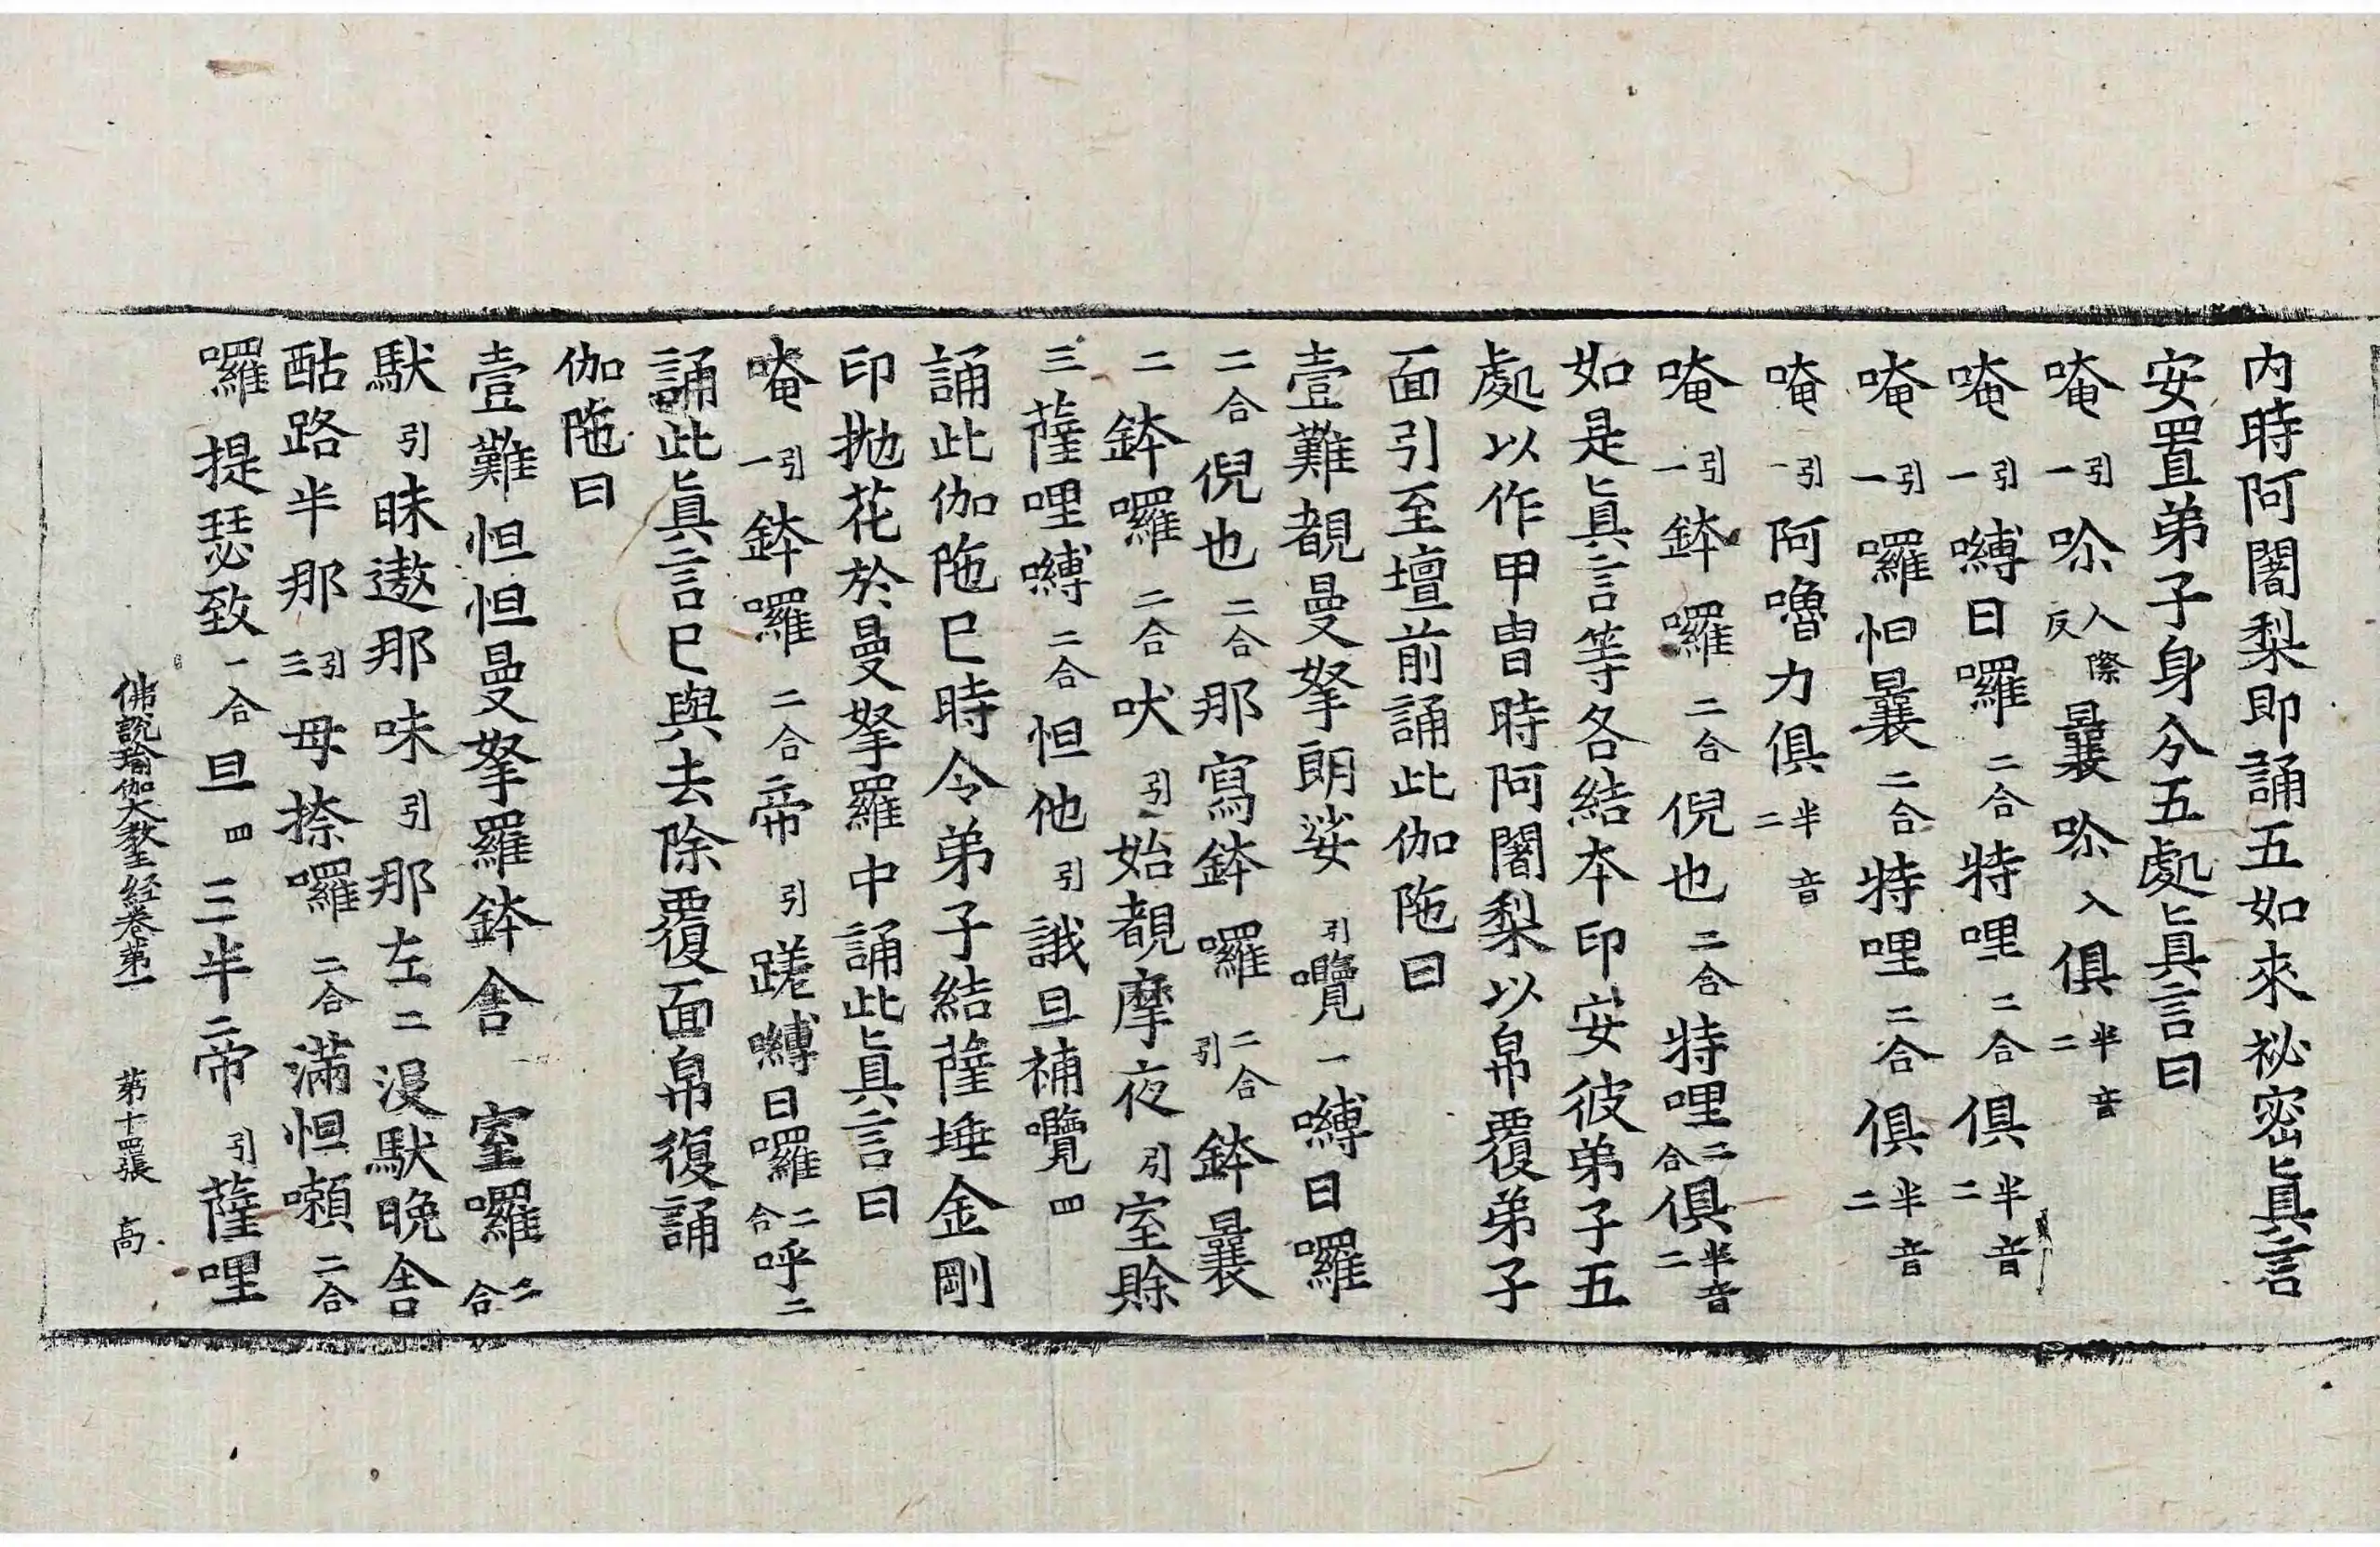 内時阿闍梨即誦五如來祕密真言
安置弟子身分五處真言曰
唵引一㖇入際反曩㖇入俱半音二
唵引一嚩日囉二合特哩二合俱半音二
唵引一囉怛曩二合特哩二合俱半音二
唵引一阿嚕力俱半音二
唵引一鉢囉二合倪也二合特哩二合俱半音二
如是真言等各結本印安彼弟子五
處以作甲冑時阿闍梨以帛覆弟子
面引至壇前誦此伽陁曰
壹難覩曼拏朗娑引囕一嚩日囉
二合倪也二合那寫鉢囉二合引鉢曩
二鉢囉二合吠引始覩摩夜引室賖
三薩哩嚩二合怛他引誐旦補囕四
誦此伽陁已時令弟子結薩埵金剛
印拋花於曼拏羅中誦此真言曰
唵引一鉢囉二合帝引蹉嚩日囉二合呼二
誦此真言已與去除覆面帛復誦
伽陁曰
壹難怛怛曼拏羅鉢舍室囉二合
馱引昧遨那味引那左二没馱晚舍
酤路半那引三母捺囉二合滿怛囉二合
囉提瑟致二合旦四三半二帝引薩哩
佛說瑜伽大教王經卷第一　第十四張　高